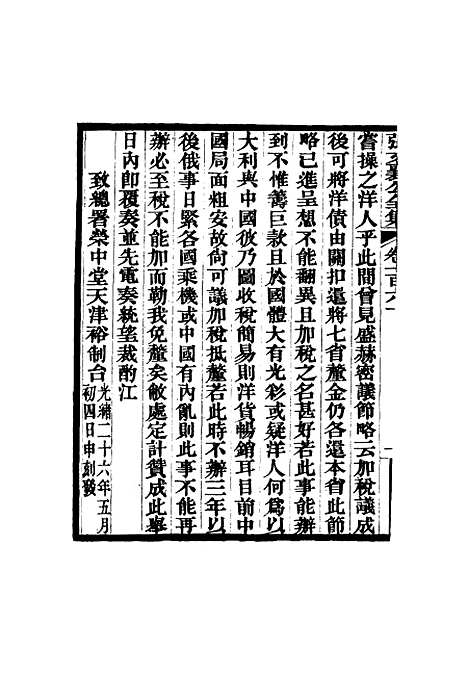 張文襄公全集 卷一百六十
嘗操之洋人乎此間曾見盛赫密議節略云加稅議成
後可將洋債由關扣還將七省釐金仍各還本省此節
略已進呈想不能翻異且加稅之名甚好若此事能辦
到不惟籌巨款且於國體大有光彩或疑洋人何爲以
大利與中國彼乃圖收稅簡易則洋貨暢銷耳目前中
國局面粗安故尙可議加稅抵釐若此時不辦三年以
後俄事日緊各國乘機或中國有內亂則此事不能再
辦必至稅不能加而勒我免釐矣敝處定計贊成此舉
日內卽覆奏並先電奏統望裁酌江
致總署榮中堂天津裕制台光緒二十六年五月
初四日申刻發